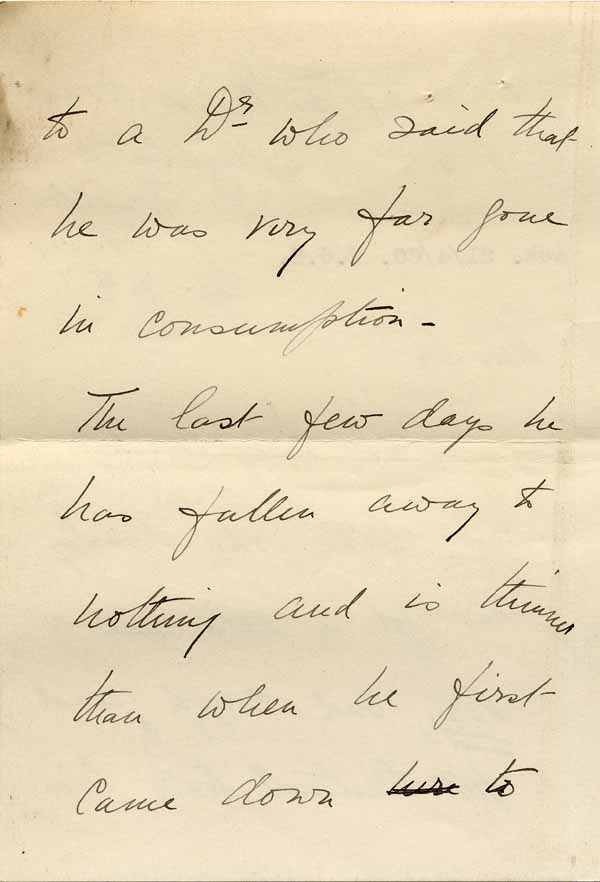 to a Dr who said that
he was very far gone
in consumption -
The last few days he
has fallen away to
nothing and is thinner
than when he first
came down here to